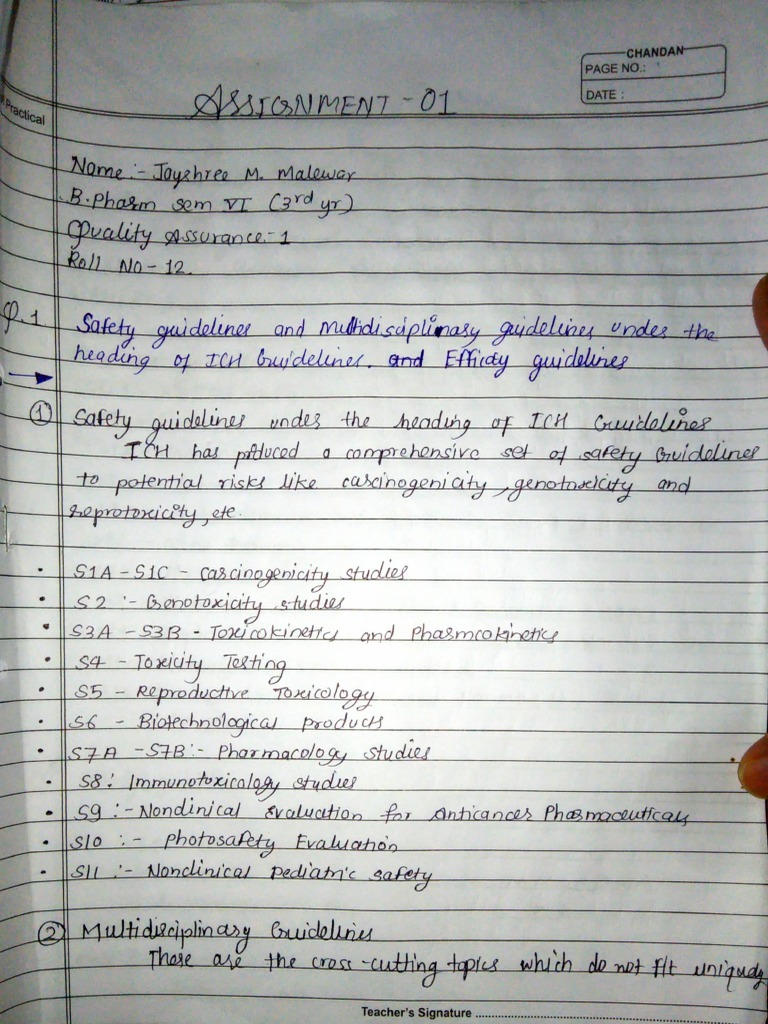 CHANDAN
PAGE NO.:
DATE :
Practical
ASSIGNMENT - 01
Name :- Jayshree M. Malewar
B. Pharm sem VI (3rd yr)
Quality Assurance:- 1
Roll No - 12.
Q.1 Safety guidelines and Multidisciplinary guidelines under the
heading of ICH Guidelines. and Efficay guidelines
① Safety guidelines under the heading of ICH Guuidelines
ICH has produced a comprehensive set of safety Guidelines
to potential risks like carcinogenicity, genotoxicity and
reprotoxicity, etc.
• S1A - S1C - carcinogenicity studies
• S2 :- Genotoxicity studies
• S3A - S3B - Toxicokinetics and Pharmcokinetics
• S4 - Toxicity Testing
• S5 - Reproductive Toxicology
• S6 - Biotechnological products
• S7A - S7B :- Pharmacology studies
• S8 : Immunotoxicology studies
• S9 :- Nonclinical Evaluation for Anticancer Pharmaceuticals
• S10 :- Photosafety Evaluation
• S11 :- Nonclinical Pediatric safety
② Multidisciplinary Guidelines
Those are the cross-cutting topics which do not fit uniquely
Teacher's Signature